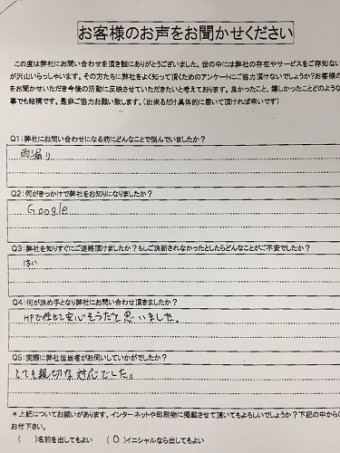 お客様のお声をお聞かせください
この度は弊社にお問い合わせを頂き誠にありがとうございました。世の中には弊社の存在やサービスをご存知ない
が沢山いらっしゃいます。その方たちに弊社をよく知って頂くためのアンケートにご協力頂けないでしょうか?お客様の
をお聞かせいただき今後の活動に反映させていただきたいと考えております。良かったこと、嬉しかったことどのような
事でも結構です。是非ご協力お願い致します。(出来るだけ具体的に書いて頂ければ幸いです)
Q1:弊社にお問い合わせになる前にどんなことで悩んでいましたか?
雨漏り
Q2:何がきっかけで弊社をお知りになりましたか?
Google
Q3:弊社を知りすぐにご連絡頂けましたか?もしご決断されなかったとしたらどんなことがご不安でしたか?
はい
Q4:何が決め手となり弊社にお問い合わせ頂きましたか?
HPで 安心そうだと思いました。
Q5:実際に弊社担当者がお伺いしていかがでしたか?
とても親切な対応でした。
*上記についてお願いがあります。インターネットや印刷物に掲載させて頂いてもよろしいでしょうか?下記の中から
お付下さい。
( )名前を出してもよい (○)イニシャルなら出してもよい